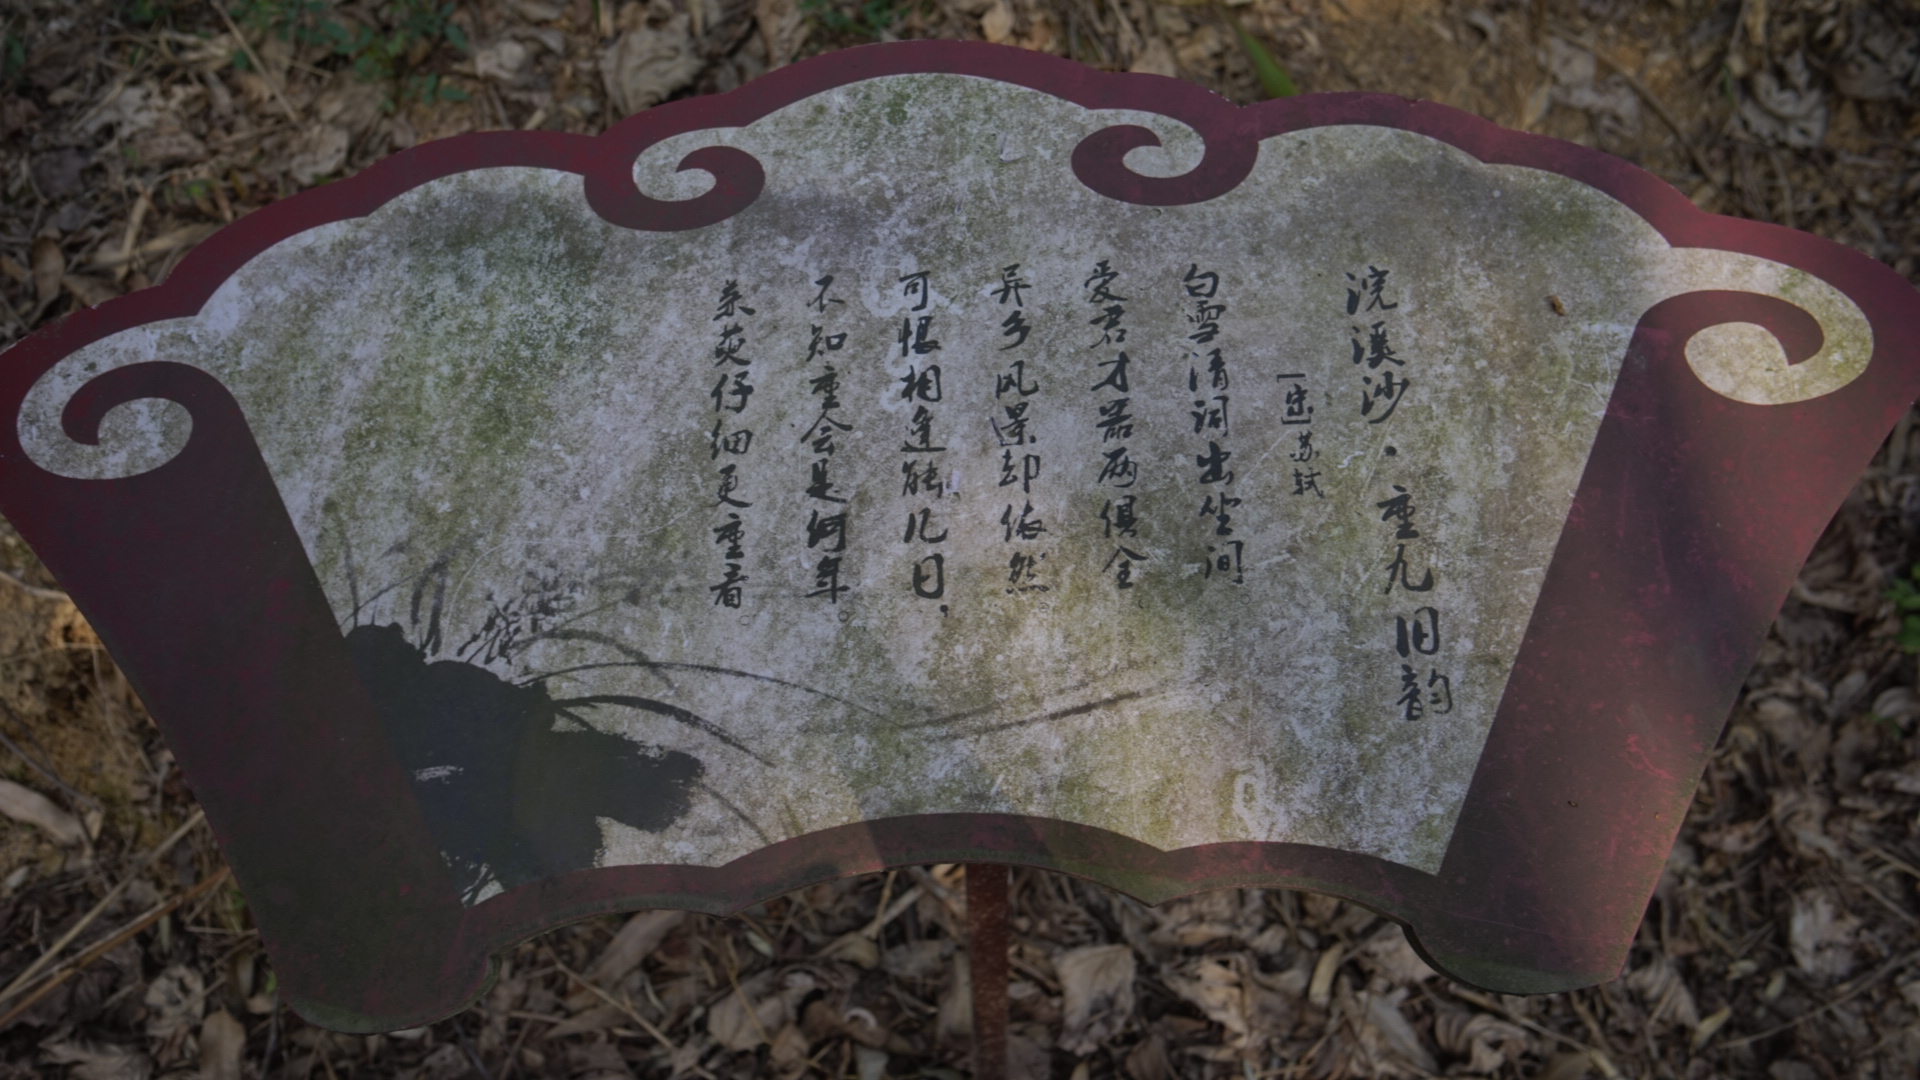 浣溪沙·重九旧韵
[宋]苏轼
白雪清词出坐间
爱君才器两俱全
异乡风景却依然。
可恨相逢能几日，
不知重会是何年。
茱萸仔细更重看。